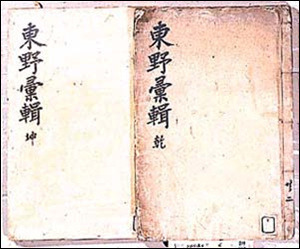 東野彙輯 乾
東野彙輯 坤